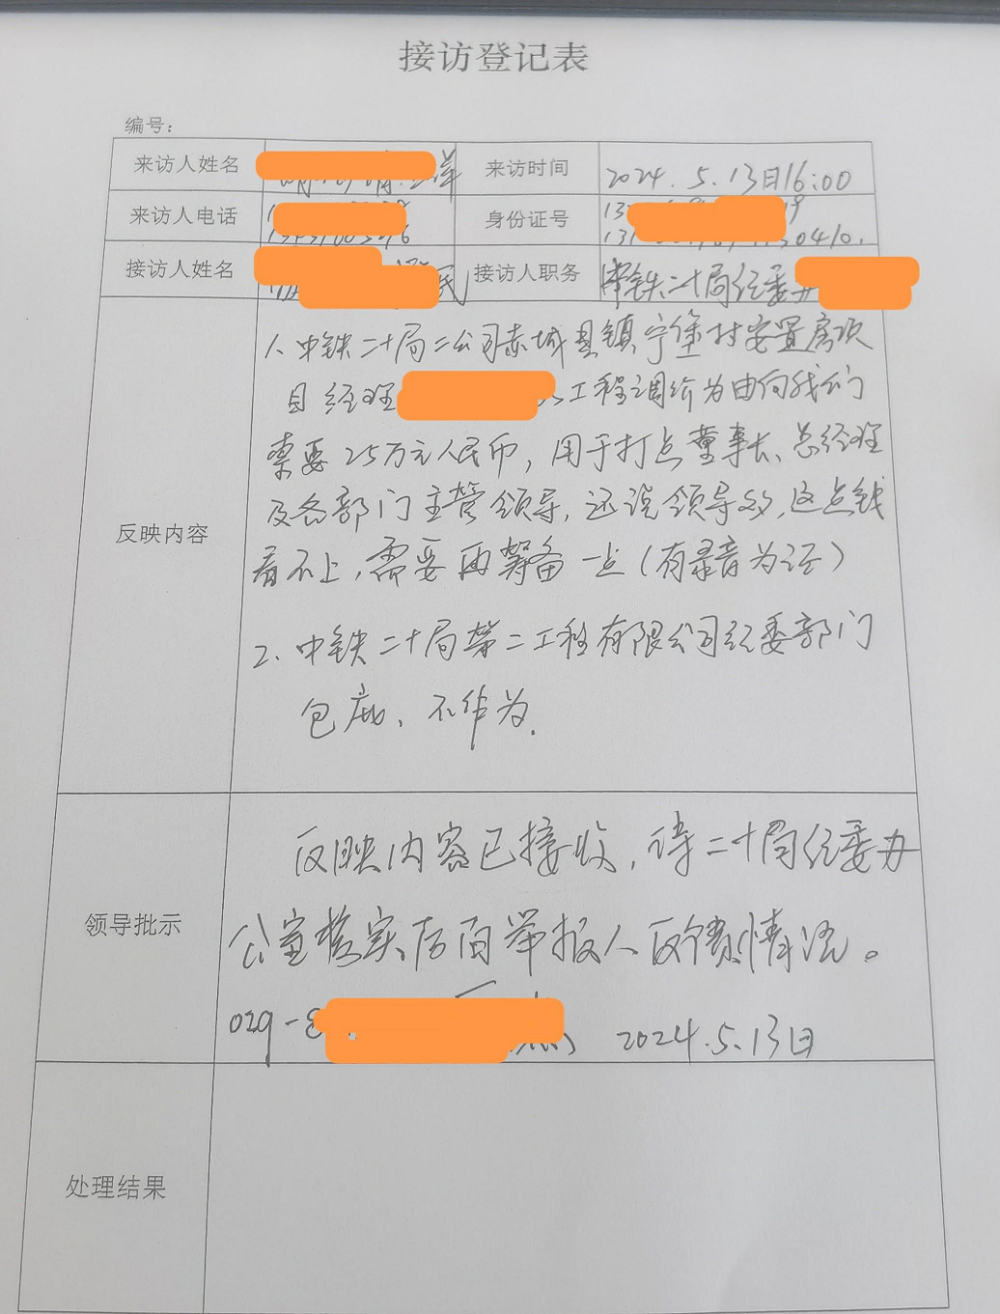 接访登记表
编号：
来访人姓名 洋 来访时间 2024.5.13日16:00
来访人电话 身份证号
接访人姓名 民 接访人职务 中铁二十局纪委办
1、中铁二十局二公司赤城县镇宁堡村安置房项
目经理 工程调价为由向我们
索要25万元人民币，用于打点董事长、总经理
反映内容
及各部门主管领导，还说领导多，这点钱
看不上，需要再筹备一点（有录音为证）
2、中铁二十局第二工程有限公司纪委部门
包庇、不作为.
反映内容已接收，待二十局纪委办
领导批示
公室核实后向举报人反馈情况。
029-8 2024.5.13日
处理结果